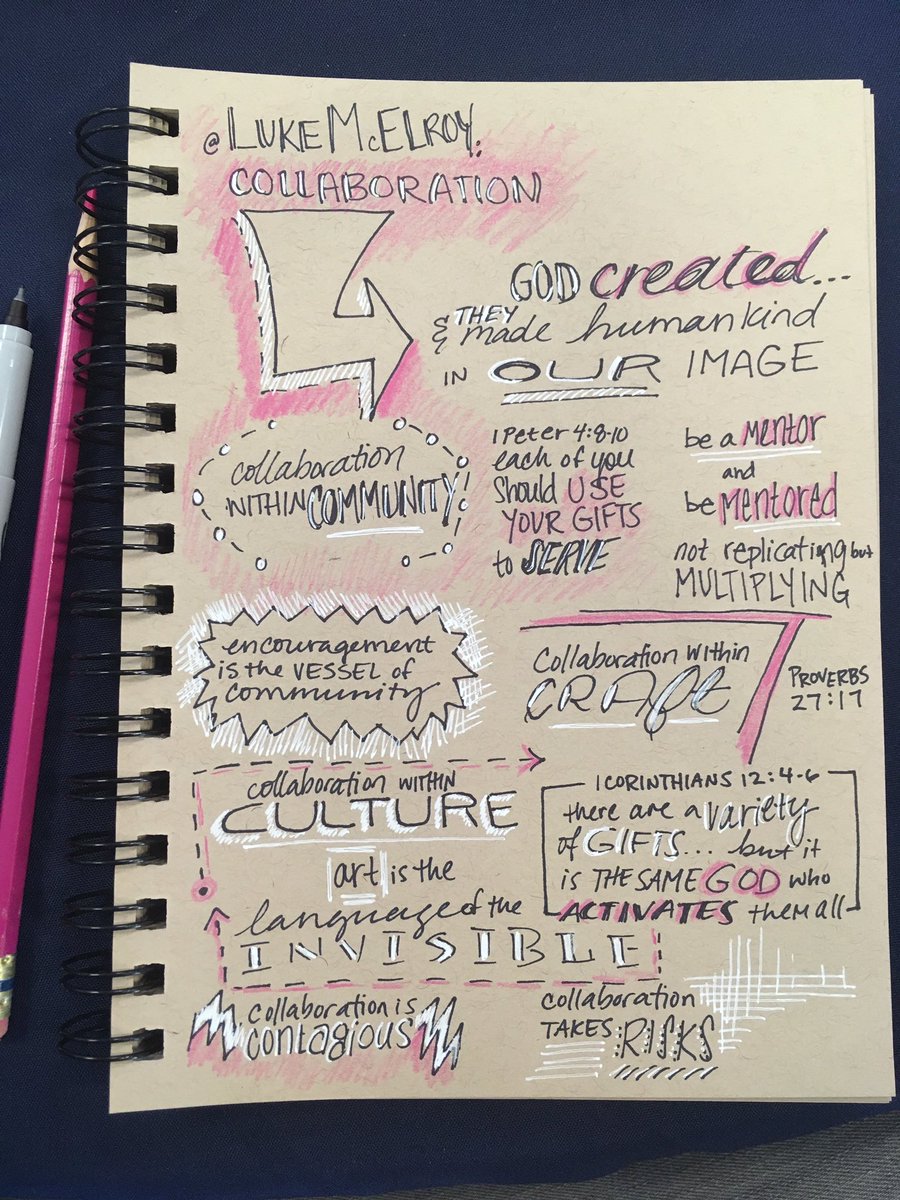 @LUKE McELROY:
COLLABORATION
GOD created...
& THEY made humankind
IN OUR IMAGE
collaboration
WITHIN COMMUNITY
1 Peter 4:8-10
each of you
should USE
YOUR GIFTS
to SERVE
be a MENTOR
and
be MENTORED
not replicating but
MULTIPLYING
encouragement
is the VESSEL of
community
Collaboration within
CRAft
PROVERBS
27:17
collaboration WITHIN
CULTURE
art is the
language of the
INVISIBLE
1 CORINTHIANS 12:4-6
there are a variety
of GIFTS... but it
is THE SAME GOD who
ACTIVATES them all
collaboration is
contagious
collaboration
TAKES RISKS